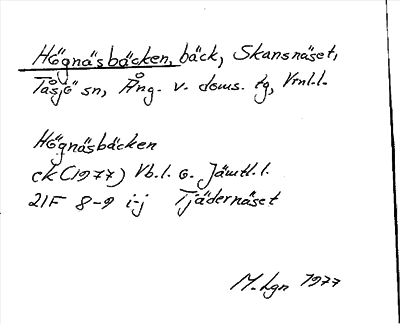 Högnäsbäcken, bäck, Skansnäset,
Tåsjö sn, Ång. v. doms. tg, Vrnl.l.
Högnäsbäcken
ek (1977) Vb.l. o. Jämtl.l.
21F 8-9 i-j Tjädernäset
M. Lgn 1977